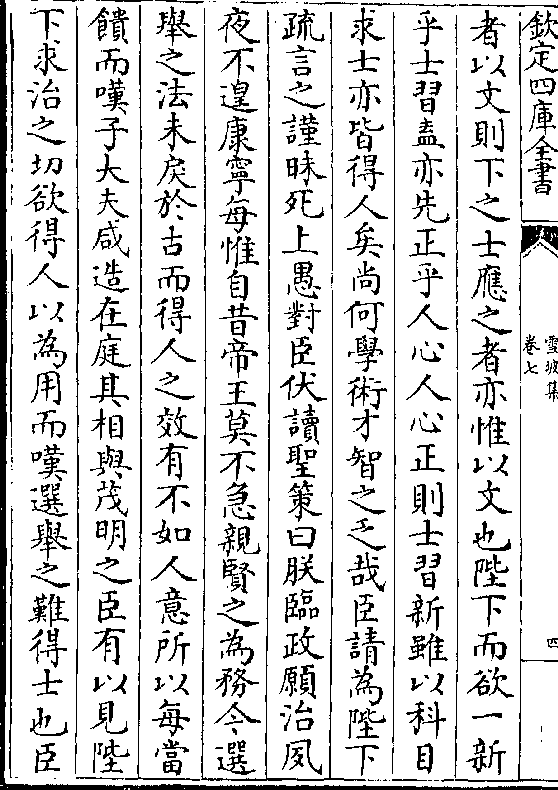 欽定四庫全書
雪坡集
卷七
四
者以文則下之士應之者亦惟以文也陛下而欲一新
乎士習盍亦先正乎人心人心正則士習新雖以科目
求士亦皆得人矣尚何學術才智之乏哉臣請為陛下
疏言之謹昧死上愚對臣伏讀聖策曰朕臨政願治夙
夜不遑康寧每惟自昔帝王莫不急親賢之為務今選
舉之法未戾於古而得人之效有不如人意所以每當
饋而嘆子大夫咸造在庭其相與茂明之臣有以見陛
下求治之切欲得人以為用而嘆選舉之難得士也臣